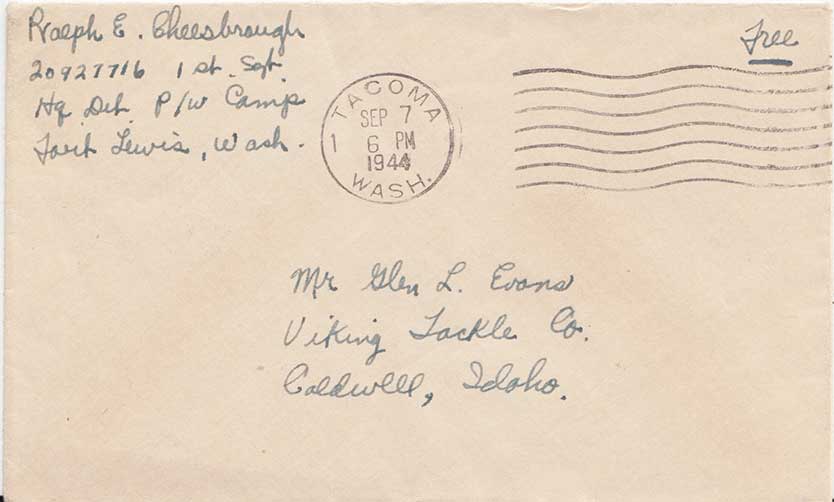 Ralph E. Cheesbrough
20927716 1st. Sgt.
Hq. Det. P/W Camp
Fort Lewis, Wash.
Free
TACOMA
SEP 7
1 6 PM
1944
WASH.
Mr Glen L. Evans
Viking Tackle Co.
Caldwell, Idaho.